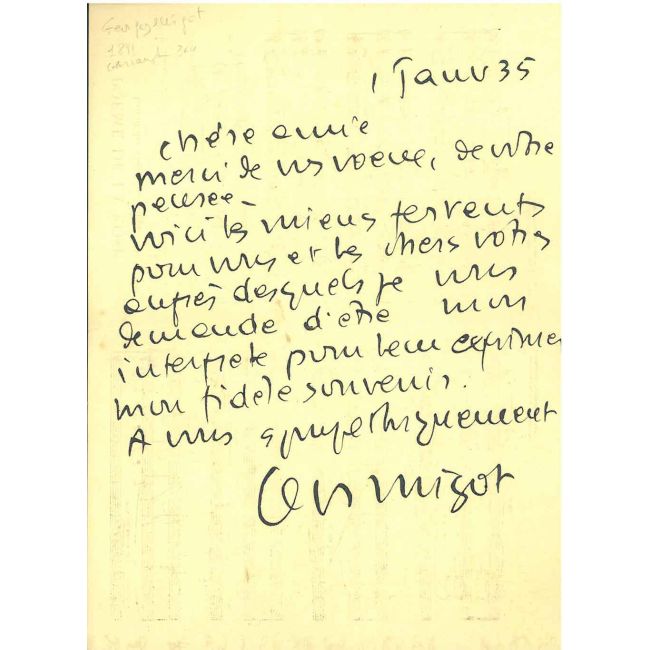 Georges Migot
1891
1 Janv 35
Chère amie
merci de vos voeux, de votre
pensée –
voici les miens fervents
pour vous et les chers vôtres
auprès desquels je vous
demande d'être mon
interprète pour leur exprimer
mon fidèle souvenir.
A vous sympathiquement
Ges Migot